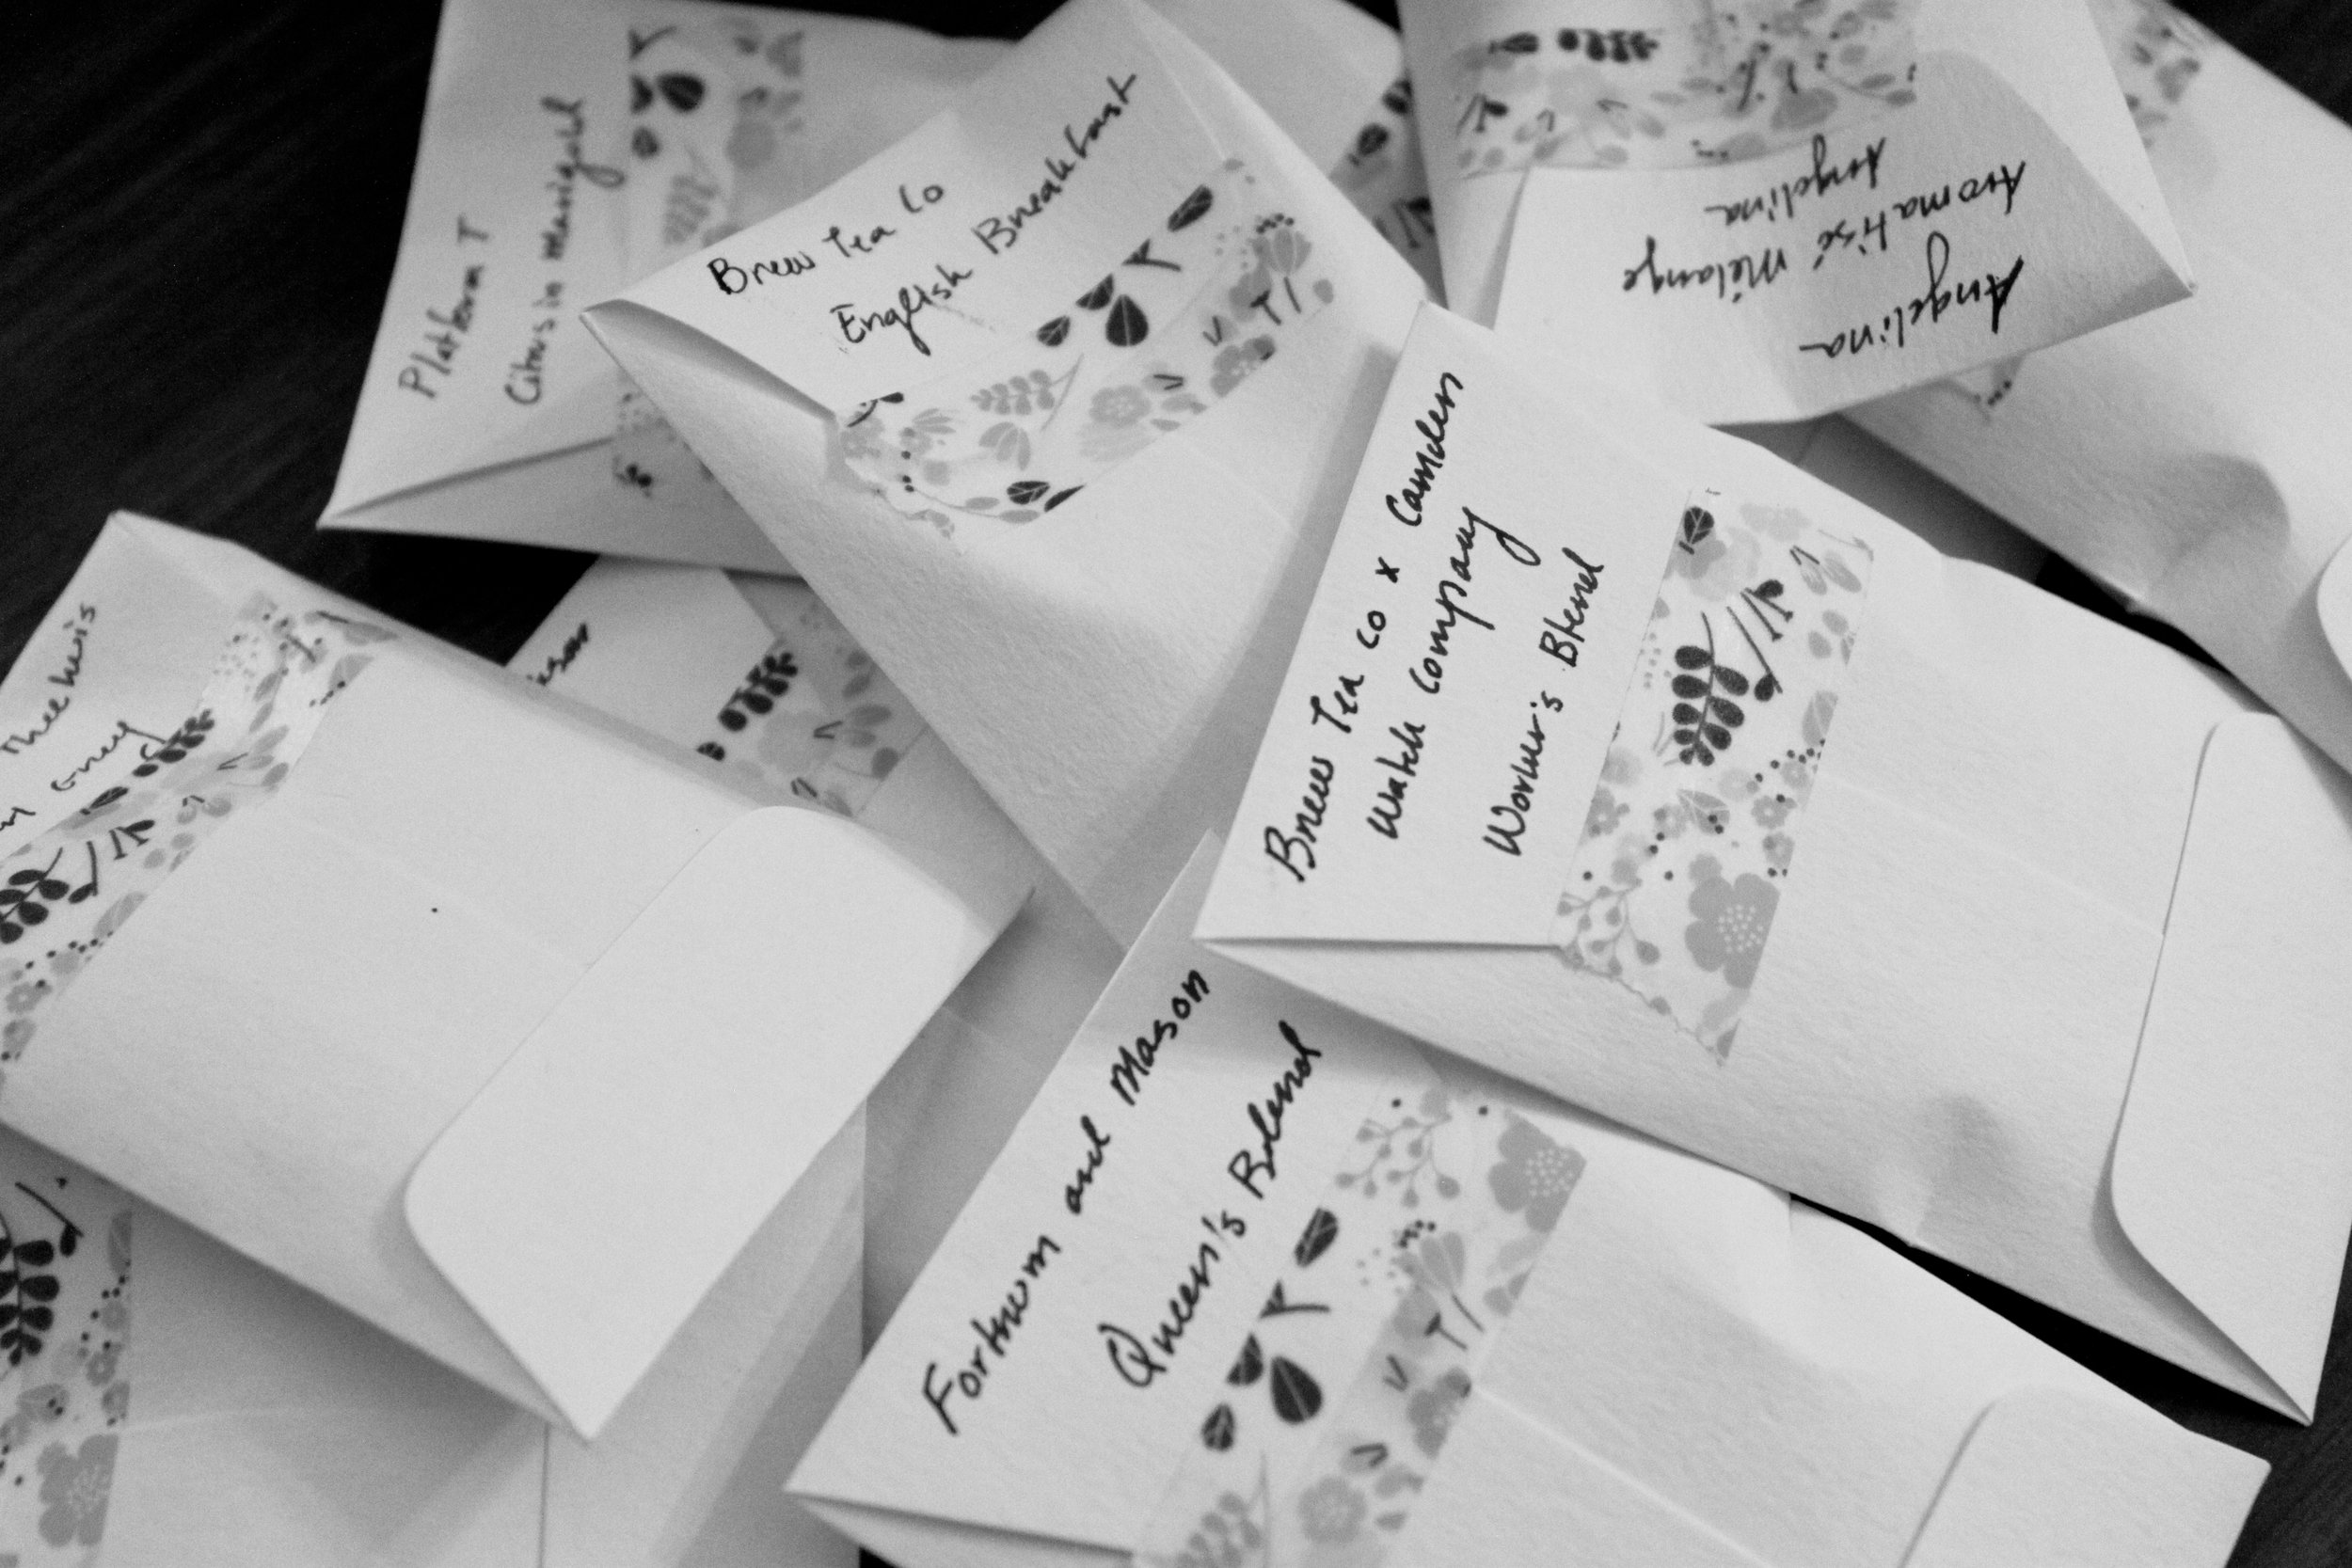 Platform T
Citrus in Marigold
Brew Tea Co
English Breakfast
Angelina
Aromatisé Mélange
Angelina
Brew Tea Co x Camden
Watch Company
Worker's Blend
Fortnum and Mason
Queen's Blend
Grey